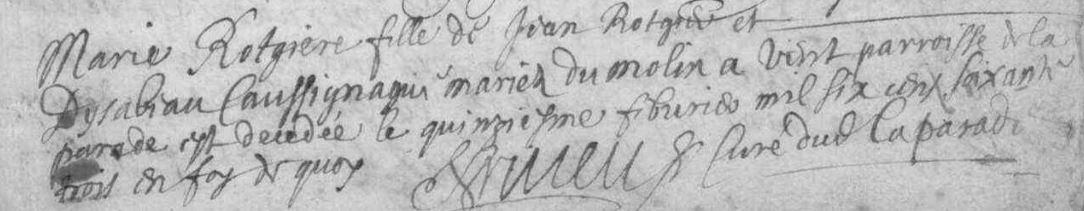 Marie Rotgiere fille de Jean Rotgier et
Dysabeau Caussignaque mariés du molin a vent parroisse de la
parade est decedée le quinziesme febvrier mil six cens soixante
trois en foy de quoy curé dud laparade